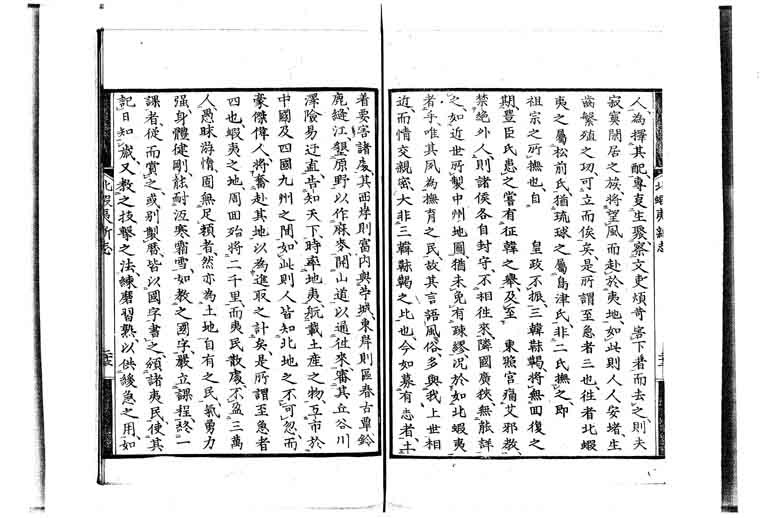 人為擇其配專責生聚察文吏煩苛害下者而去之則夫
寂寞閑居之族將望風而赴於夷地如此則人人安堵生
齒繁殖之功可立而俟矣是所謂至急者三也往者北蝦
夷之屬松前氏猶琉球之屬島津氏非二氏撫之即
祖宗之所撫也自 皇政不振三韓靺鞨將無回復之
期豊臣氏患之嘗有征韓之舉及至 東照宮痛艾邪教
禁絕外人則諸侯各自封守不相往來隣國廣狹無能詳
之如近世所製中州地圖猶未免有疎繆況於如北蝦夷
者乎唯其夙為撫育之民故其言語風俗多與我上世相
近而情交親密大非三韓靺鞨之比也今如募有志者土
着要害諸處其西岸則富内與勞城東岸則區春古單鈴
鹿縫江墾原野以作麻麥開山道以通往來審其丘谷川
澤險易迂直告知天下時率地夷航載土産之物互市於
中國及四國九州之間如此則人皆知北地之不可忽而
豪傑偉人將奮赴其地以為進取之計矣是所謂至急者
四也蝦夷之地周回殆將二千里而夷民散處不盈三萬
人愚昧游惰固無足賴者然亦為土地自有之民氣勇力
强身體健剛能耐沍寒霜雪如教之國字嚴立課程終一
課者從而賞之或別製曆皆以國字書之頒諸夷民使其
記日知歲又教之技撃之法練磨習熟以供緩急之用如
北蝦夷新志
北蝦夷新志